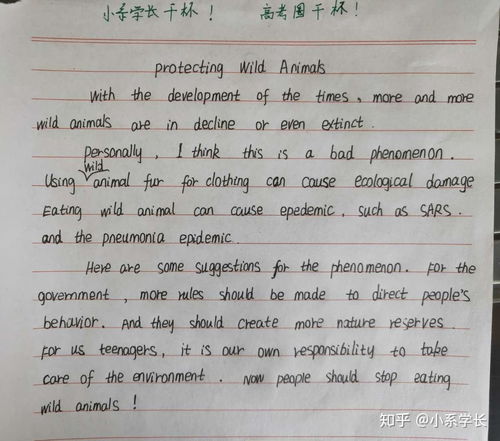 小系学长干杯！ 高考国干杯！
protecting Wild Animals
With the development of the times, more and more
wild animals are in decline or even extinct.
personally, I think this is a bad phenomenon.
wild
Using animal fur for clothing can cause ecological damage
Eating wild animal can cause epedemic, such as SARS.
and the pneumonia epidemic.
Here are some suggestions for the phenomenon. For the
government, more rules should be made to direct people's
behavior. And they should create more nature reserves.
For us teenagers, it is our own responsibility to take
care of the environment. Now people should stop eating
wild animals!
知乎 @小系学长